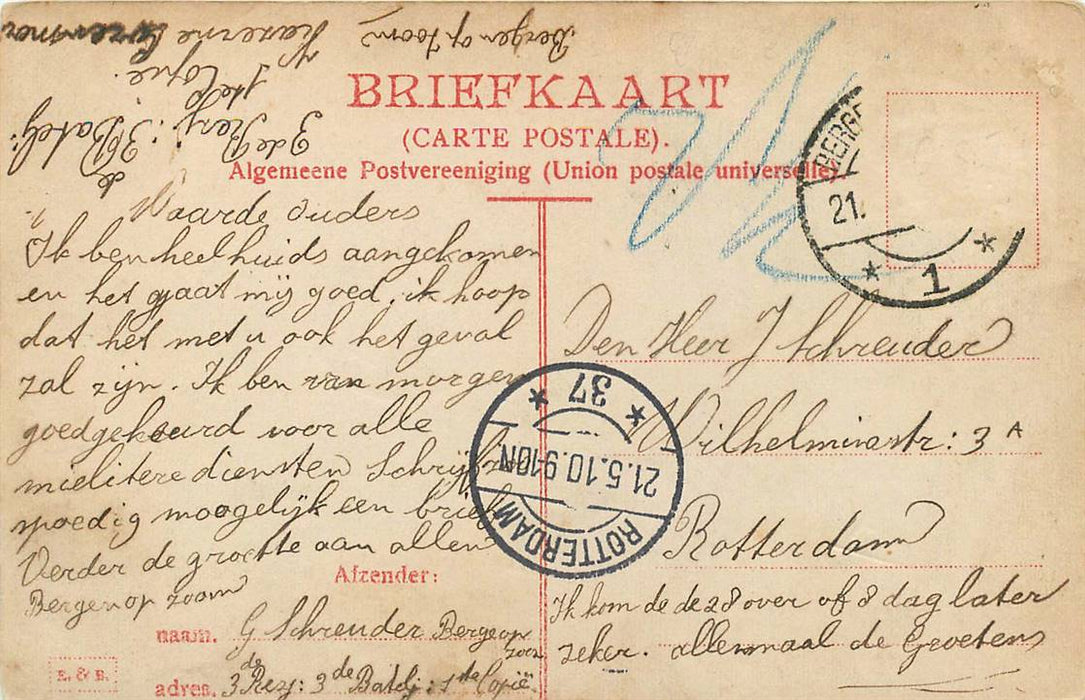 Bergen op Zoom
Kazerne
1ste Copie.
3de Regj: 3de Batelj:
BRIEFKAART
(CARTE POSTALE).
Algemeene Postvereeniging (Union postale universelle)
BERGE
21.
1
Waarde ouders
Ik ben heelhuids aangekomen
en het gaat mij goed, ik hoop
dat het met u ook het geval
zal zijn. Ik ben van morgen
goedgekeurd voor alle
mielitere diensten Schrijf zoo
spoedig moogelijk een brief
Verder de groette aan allen
Bergen op zoom
Den Heer J Schreuder
Wilhelminastr: 3A
Rotterdam
ROTTERDAM
21.5.10.9-10N
37
Ik kom de de 28 over of 8 dag later
zeker. allemaal de Groetens
Afzender:
naam. G Schreuder Bergen op zoom
adres. 3de Regj: 3de Batelj: 1ste Copië.
E. & B.